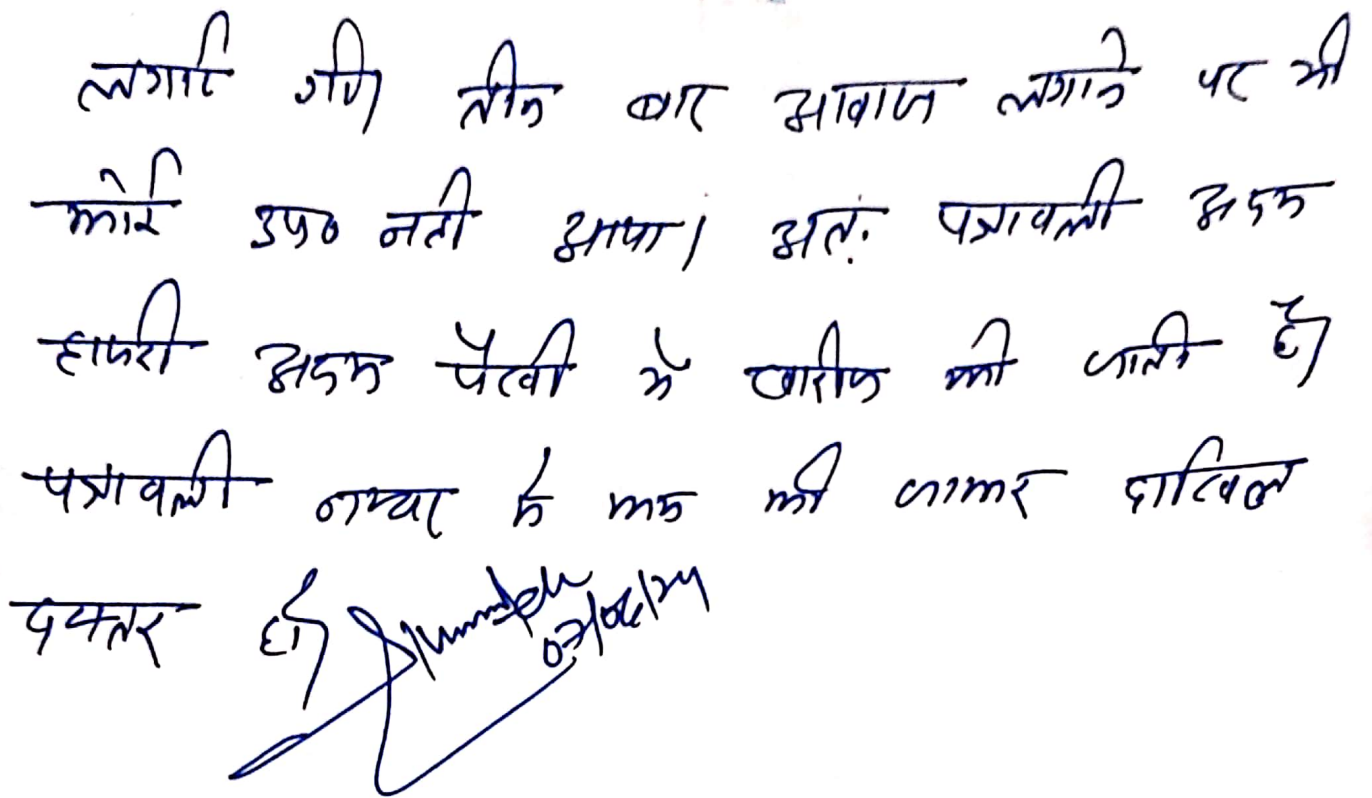 लगाई गयी। तीन बार आवाज लगाने पर भी
कोई उप० नही आया। अतः पत्रावली अदम
हाजरी अदम पैरवी मे खारीज की जाती है।
पत्रावली नम्बर से कम की जाकर दाखिल
दफ्तर हो।